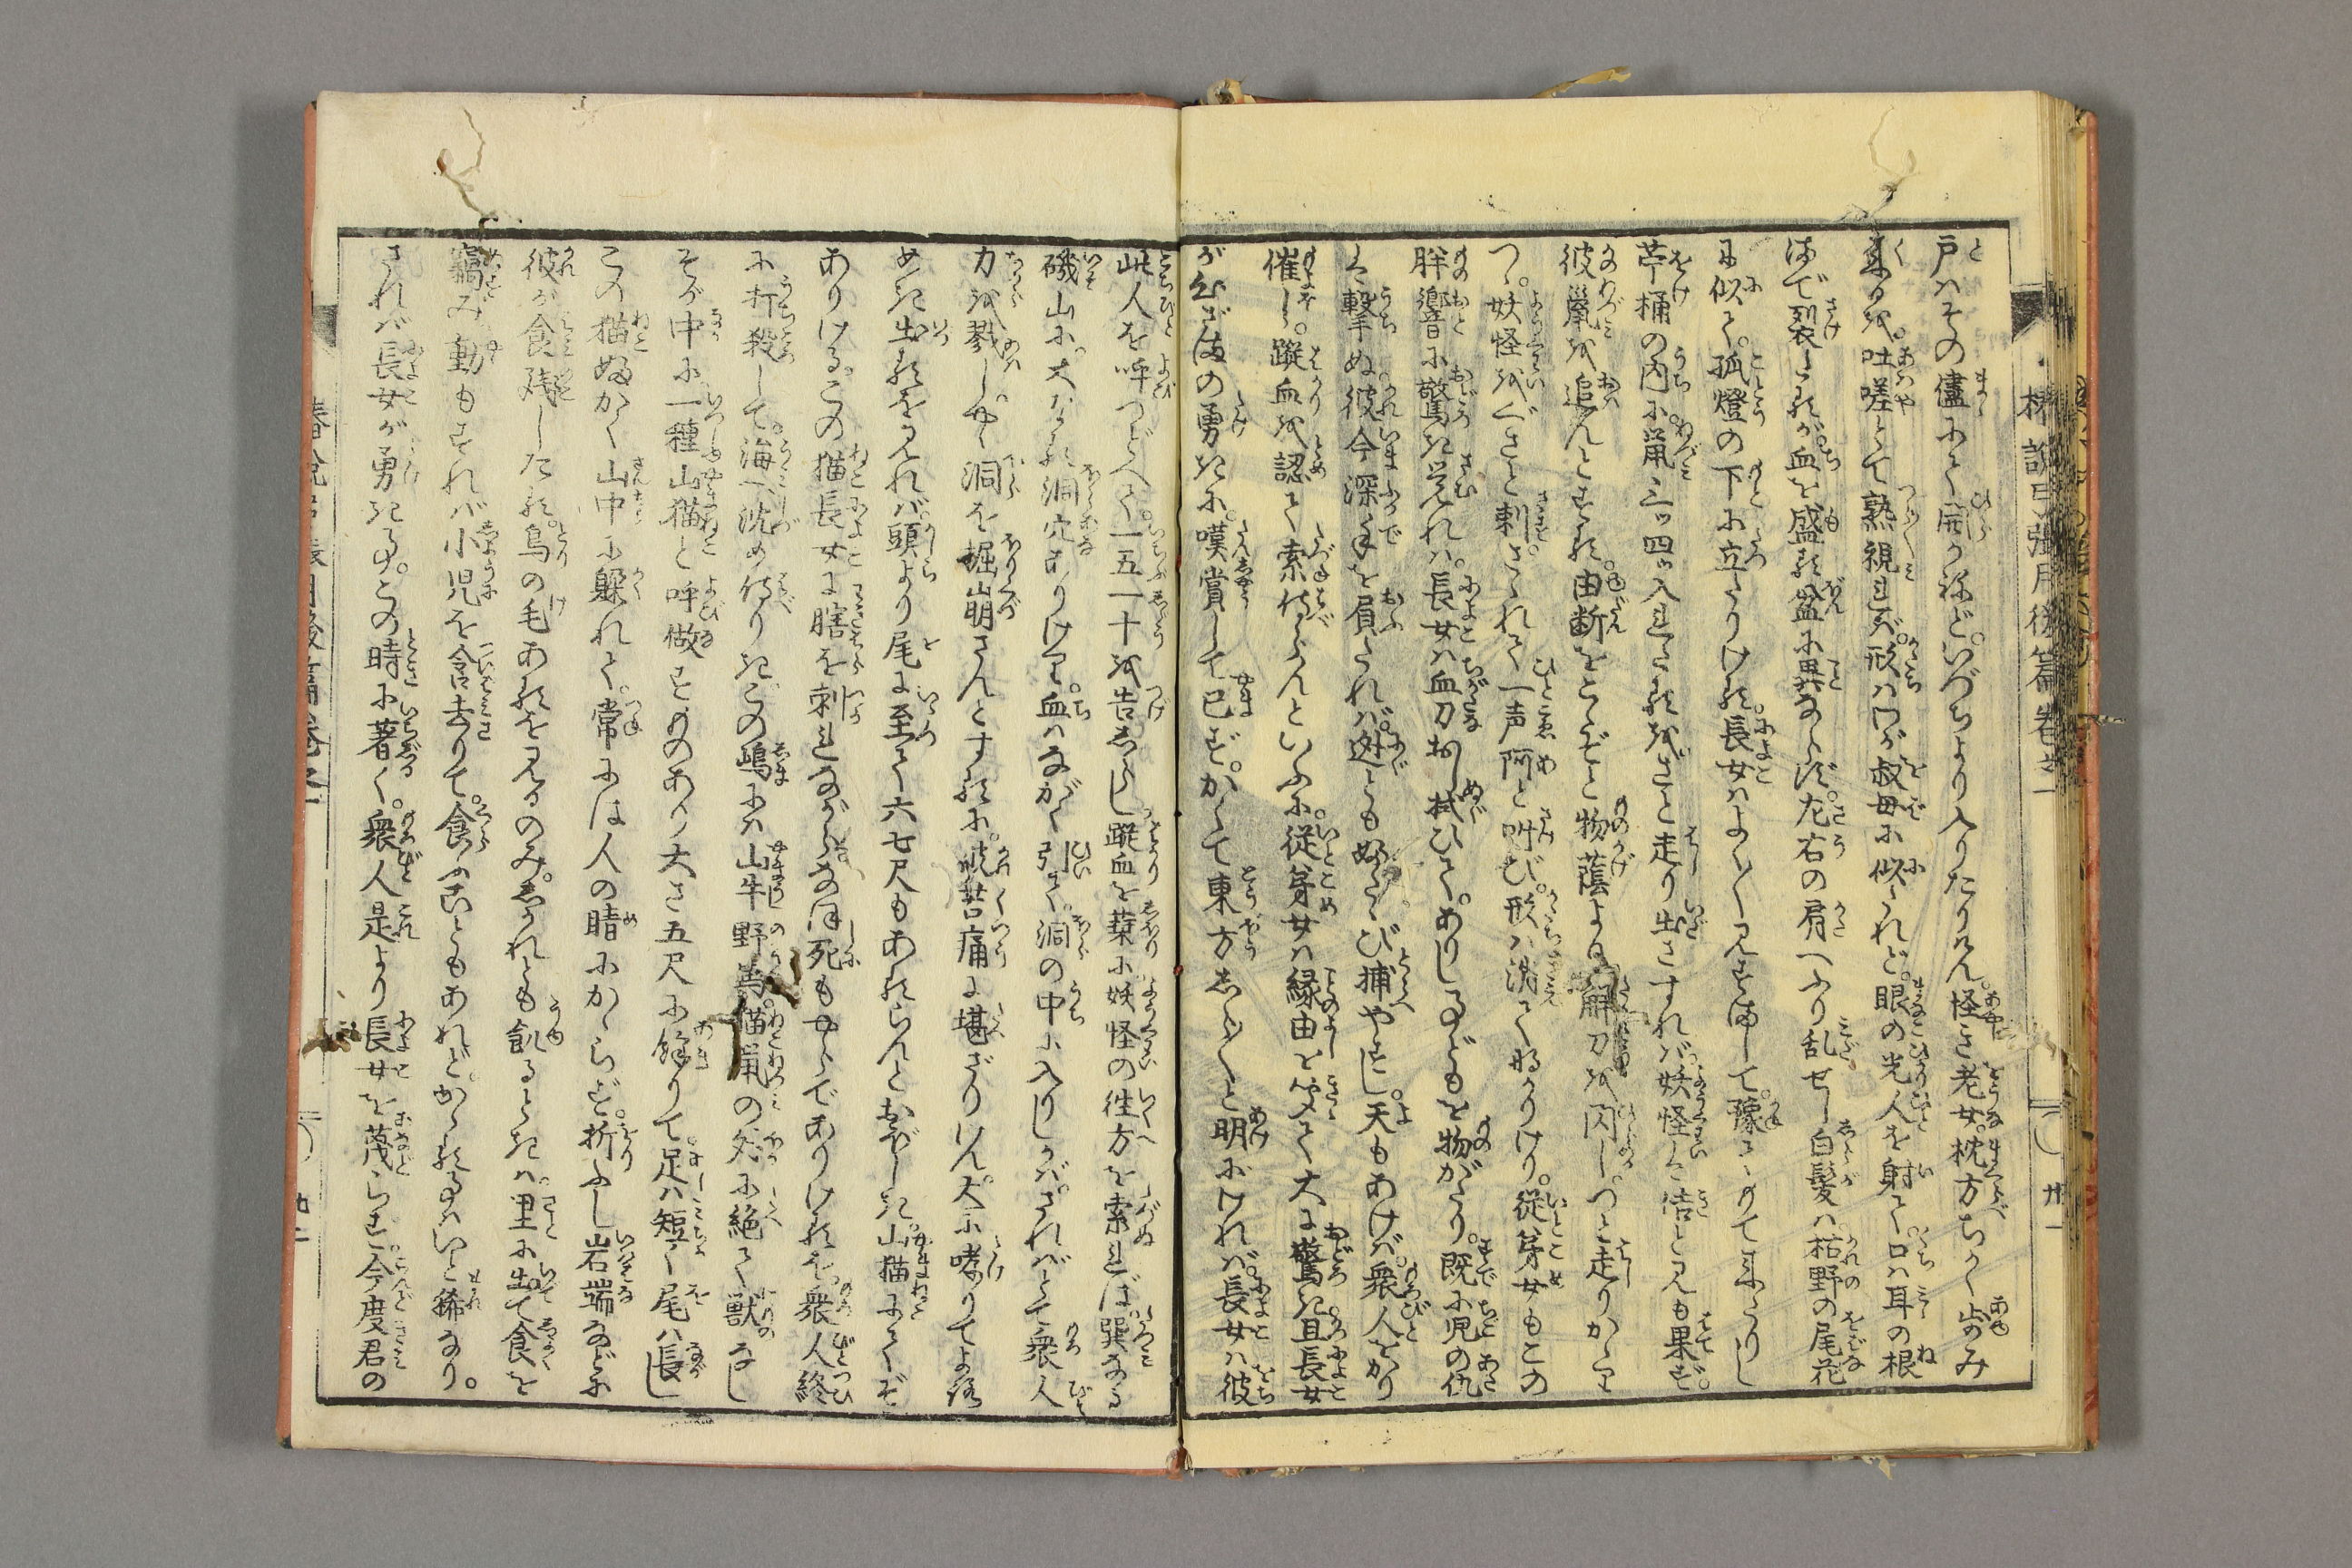 椿説弓張月後篇巻之一
戸はその儘にて開かねど。いづちより入りたりけん。怪き老女。枕方ちかく歩み
来るを。吐嗟とて熟視れば。形はわが叔母に似たれど。眼の光人を射て。口は耳の根
まで裂たるが。血を盛る盆に異ならず。左右の肩へふり乱せし白髪は。枯野の尾花
に似て。孤燈の下に立たりける。長女はよく〳〵見すまして。豫てもて来たりし
苧桶の内に。鼠三ッ四ッ入れたるを。さと走り出さすれば。妖怪は信と見も果ず。
彼鼠を追んとする。由断をこゝぞと物蔭より。解刀を閃し。つと走りかゝり
つゝ妖怪をぐさと刺。さゝれて一声阿と叫び。形は消てなかりけり。従弟女もこの
胖響に驚き覚れば。長女は血刀おし拭ひて。ありし事どもを物がたり。既に児の仇
は撃ぬ。彼今深手を負たれば。迯とも如たび捕やすし。天もあけば。衆人をかり
催し。蹤血を認て索侍らんといふに。従弟女は縁由を聞て大に驚き且長女
が心ざまの勇きに。嘆賞して已ず。かくて東方しら〳〵と明にければ。長女は彼
此人を呼つどへて。一五一十を告しらし蹤血を栞に妖怪の往方を索れば。巽なる
磯山に。大なる洞穴ありけり。血はながく引て。洞の中に入りしかば。さればとて衆人
力を戮し。やゝ洞を掘崩さんとする程に。彼苦痛に堪ざりけん。大に哮りてよろ
めき出るを見れば。頭より尾に至て六七尺もあるらんとおぼしき山猫にてぞ
ありける。この猫長女に膳を刺れながら。なほ死もやらでありけるを。衆人終
に打殺して。海へ沈め侍りき。この嶋には山牛野羊猫鼠の外に絶て獣なし
そが中に。一種山猫と呼做すものあり大さ五尺に餘りて。足は短く尾は長し
この猫ふかく山中に躱れて。常には人の睛にかゝらず。折ふし岩端などに
彼が食残したる。鳥の毛あるを見るのみ。しかれども飢るときは。里に出て食を
竊み動もすれば小児を含去りて。食ふこともあれど。かゝる事はいと稀なり。
されば長女が勇き事。この時に著く。衆人是より長女を蔑らず。今度君の
廿一